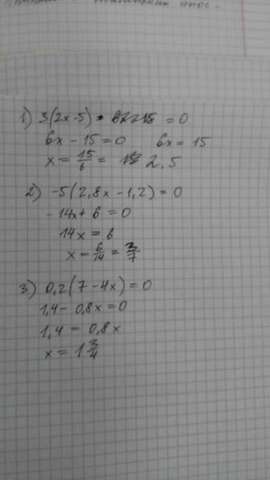 1) 3(2x-5) = 0
6x - 15 = 0 6x = 15
x = 15/6 = 2.5
2) -5(2,8x - 1,2) = 0
-14x + 6 = 0
14x = 6
x = 6/14 = 3/7
3) 0,2(7 - 4x) = 0
1,4 - 0,8x = 0
1,4 = 0,8x
x = 1 3/4